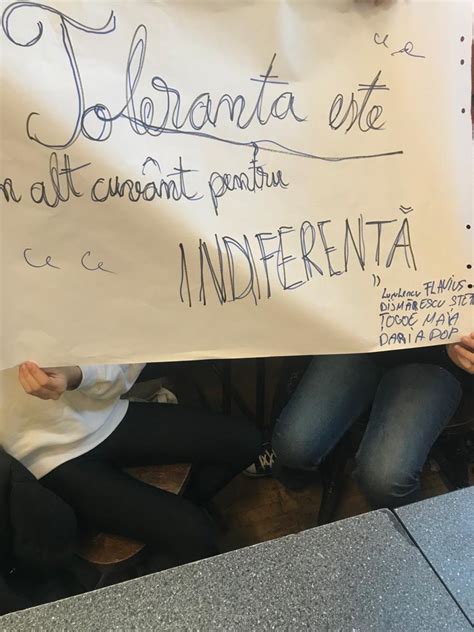 Toleranta este
n alt cuvânt pentru
INDIFERENTĂ
"
FLAVIUS
DIJMĂRESCU STE
ȚOGOE MAIA
DARIA POP